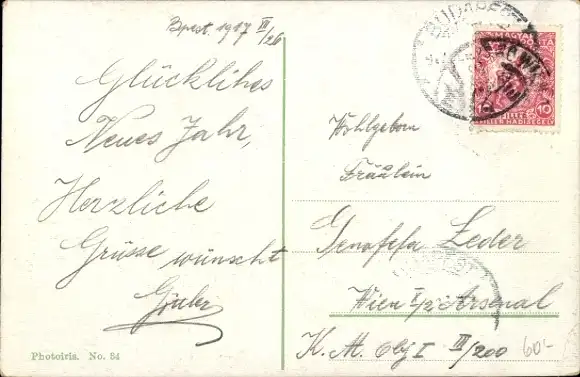 Bpest. 1917 III/26
Glückliches
Neues Jahr,
Herzliche
Grüsse wünscht
Photoiris. No. 84
BUDAPEST
MAGYAR POSTA
10
Wohlgeborn
Fräulein
Genofefa Zeder
Wien I/2 Arsenal
K. M. Obj I III/200
60.-